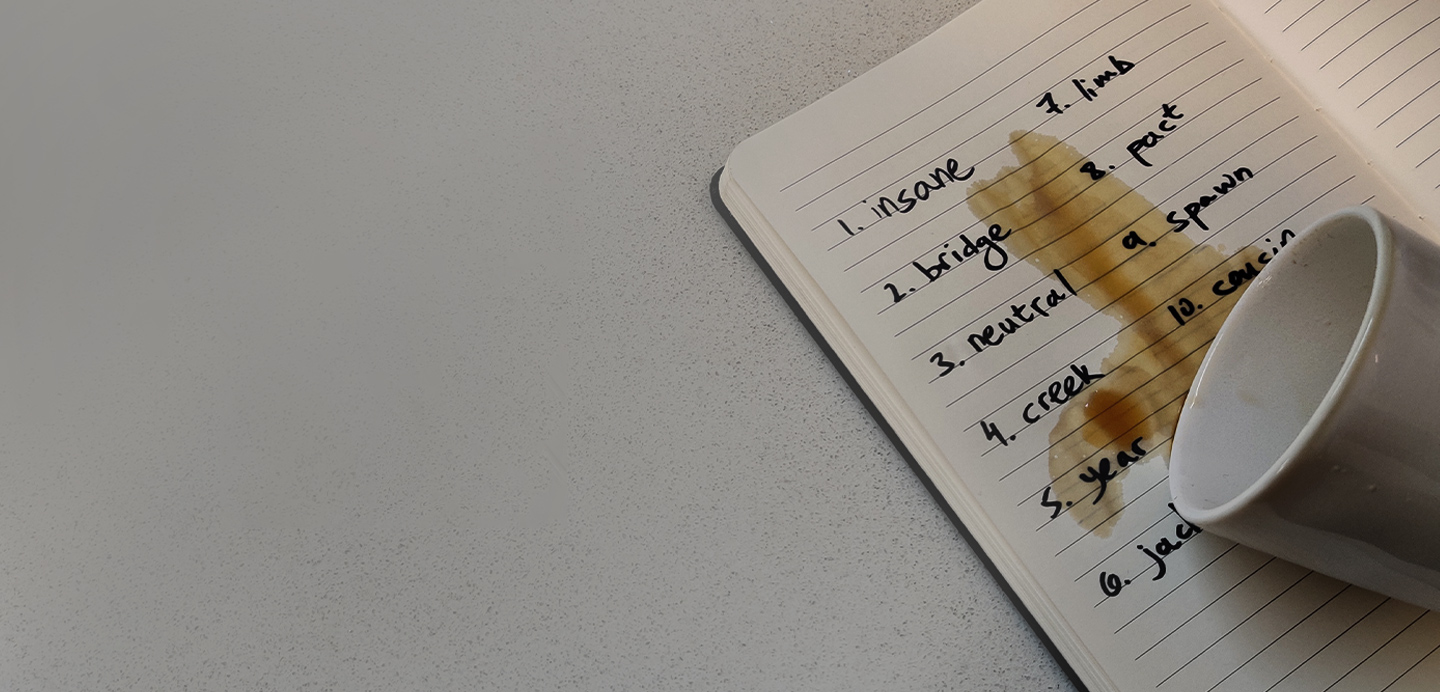 1. insane
2. bridge
3. neutral
4. creek
5. year
6.
7. limb
8. pact
9. spawn
10. cousin